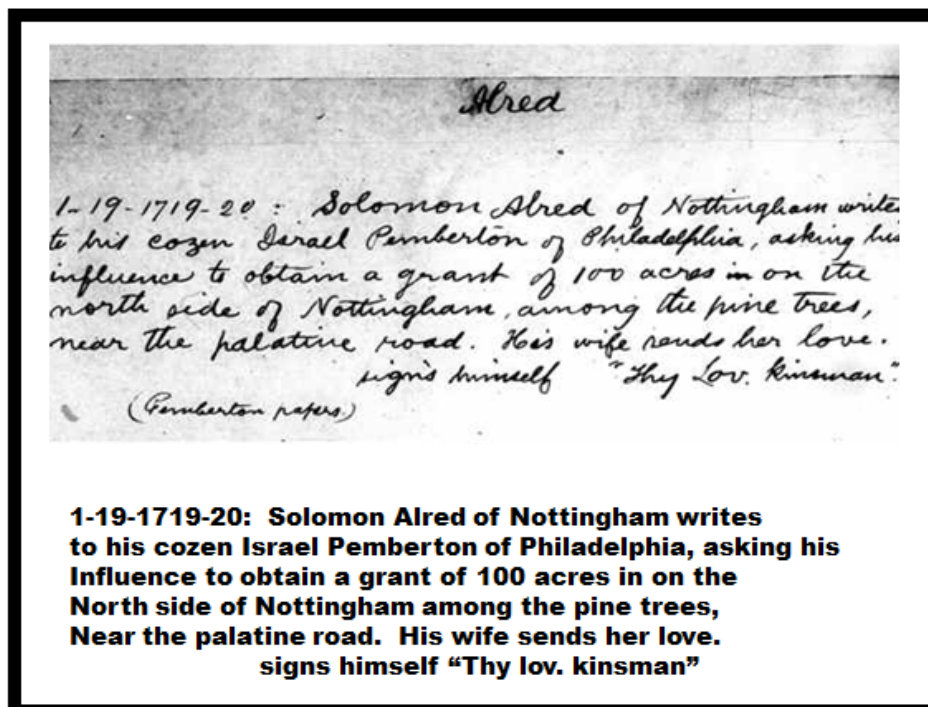 Alred
1-19-1719-20: Solomon Alred of Nottingham writes
to his cozen Israel Pemberton of Philadelphia, asking his
influence to obtain a grant of 100 acres in on the
north side of Nottingham, among the pine trees,
near the palatine road. His wife sends her love.
signs himself "Thy Lov. kinsman".
(Pemberton papers.)
1-19-1719-20: Solomon Alred of Nottingham writes
to his cozen Israel Pemberton of Philadelphia, asking his
Influence to obtain a grant of 100 acres in on the
North side of Nottingham among the pine trees,
Near the palatine road. His wife sends her love.
signs himself “Thy lov. kinsman”